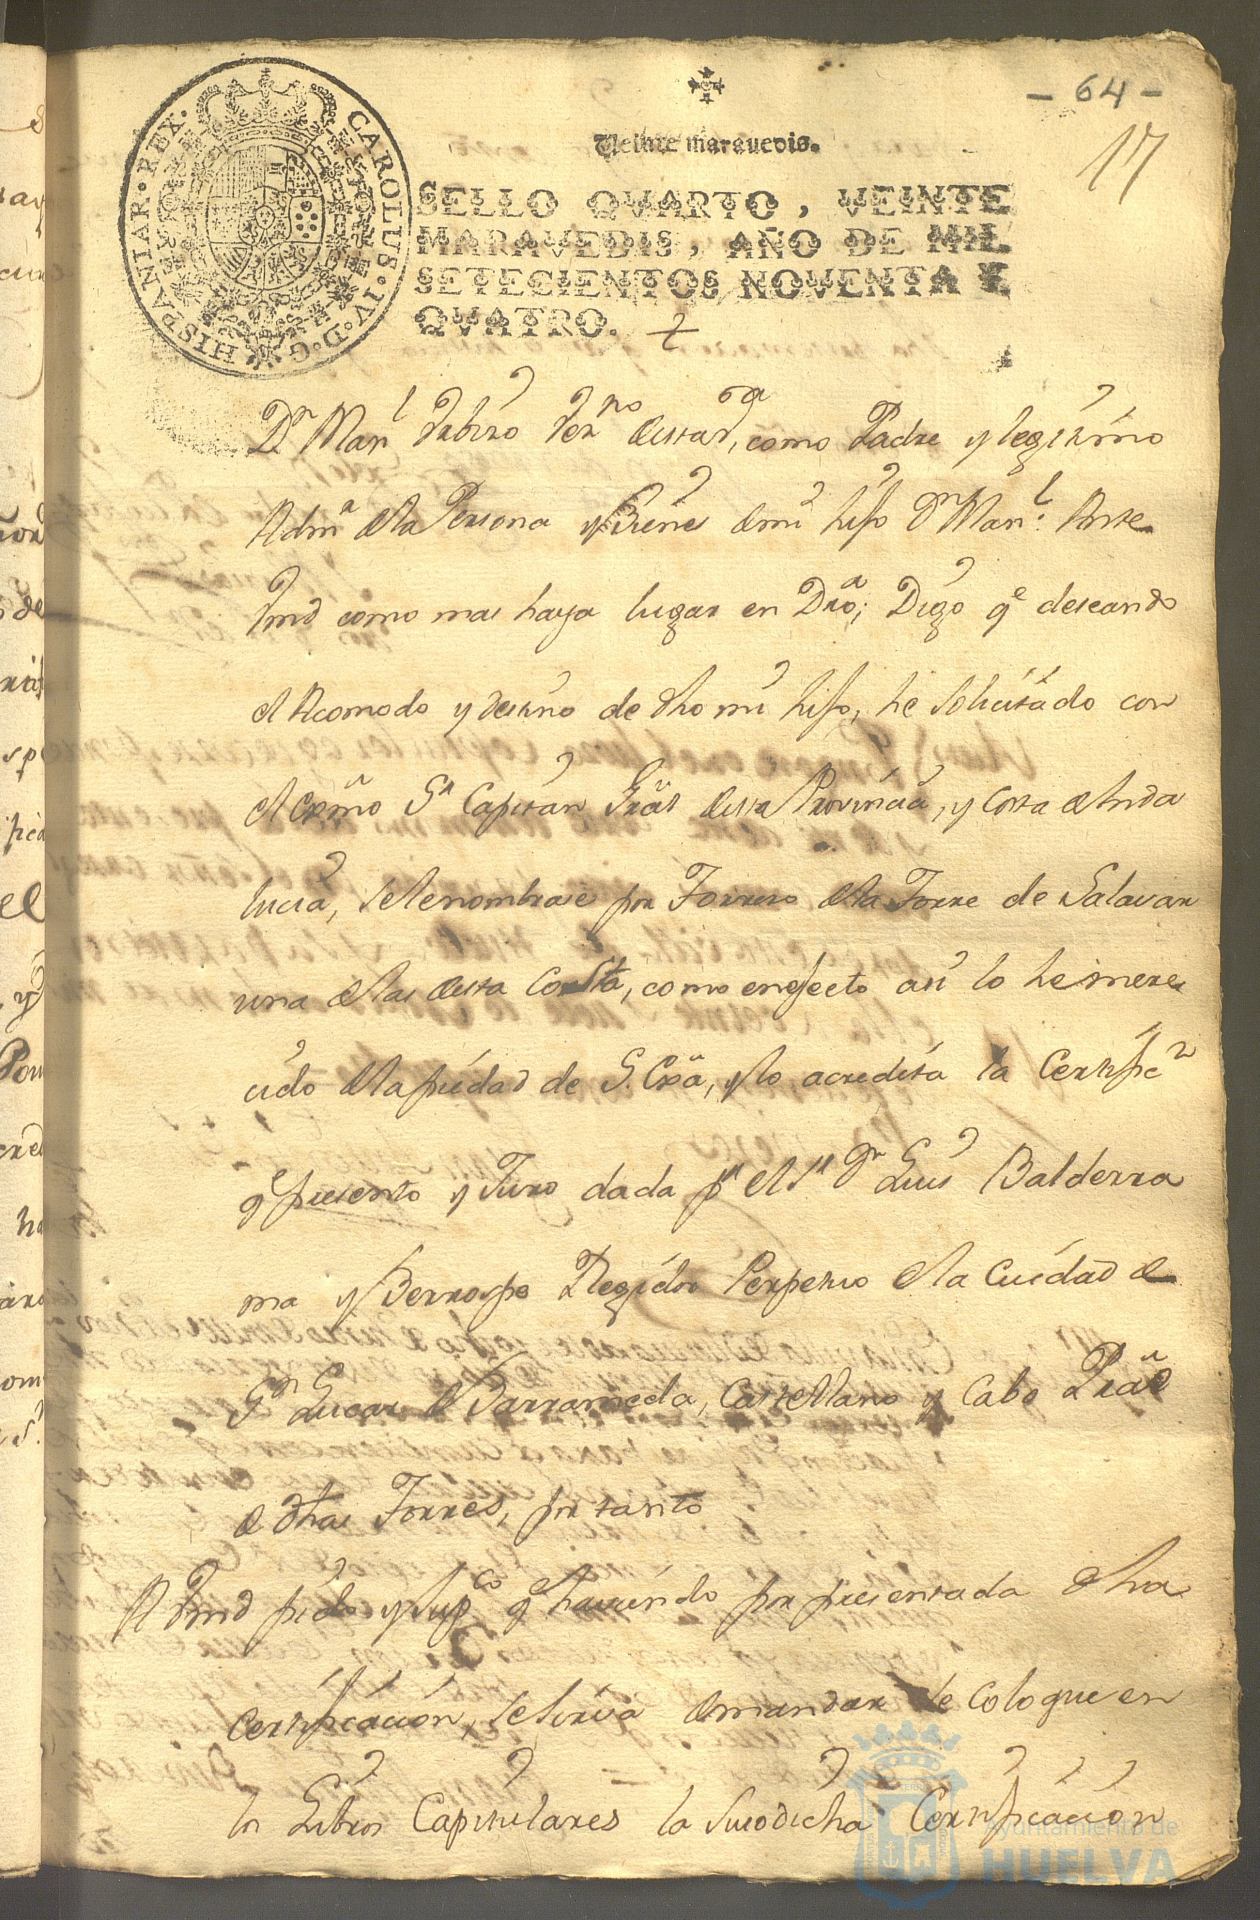 - 64 -
17
Veinte maravedis.
SELLO QVARTO, VEINTE
MARAVEDIS, AÑO DE MIL
SETECIENTOS NOVENTA Y
QVATRO.
CAROLUS·IV·D·G·HISPANIAR·REX·
Dn Manl como Padre y legitimo
Admr dela Persona y Bienes de mi hijo Dn Manl. Ante
Vmd como mas haya lugar en Dro; Digo qe deseando
el Acomodo y destino de dho mi hijo, he solicitado con
el exmo Sr Capitan Gral desta Provincia, y Costa de Anda
lucia, sele nombrase por Torrero dela Torre de Salavar
una delas desta Costa, como en efecto asi lo he mere
cido dela piedad de S. Exa, y lo acredita la Certificn
qe presento y Juro dada pr el Sr Dn Luis Balderra
ma y Berrospe Regidor Perpetuo dela Cuidad de
Sn Lucar de Barrameda, Castellano y Cabo Pral
de dhas Torres, por tanto
A Vmd pido y supco qe haviendo por presentada dha
Certificacion, se sirva de mandar se coloque en
los Libros Capitulares la susodicha Certificacion
Ayuntamiento de
HUELVA